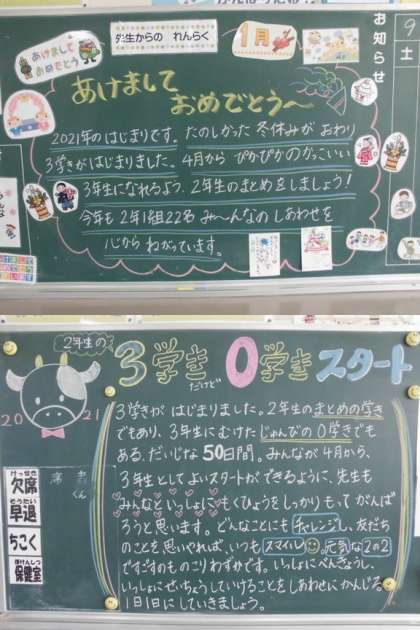 お知らせ
9
土
先生からの れんらく
1月
あけまして
おめでとう
あけまして
おめでとう〜
2021年のはじまりです。たのしかった 冬休みが おわり
3学きがはじまりました。4月から ぴかぴかのかっこいい
3年生になれるよう、2年生のまとめをしましょう!
今年も 2年1組22名 み〜んなの しあわせを
心から ねがっています。
2年生の
3学き だけど 0学き スタート
2021
3学きが はじまりました。2年生のまとめの学き
でもあり、3年生にむけたじゅんびの0学きでも
ある、だいじな 50日間。みんなが 4月から、
3年生としてよいスタートができるように、先生も
みんなといっしょに もくひょうをしっかりもって がんば
ろうと思います。どんなことにも チャレンジし、友だち
のことを思いやれば、いつも スマイル。元気な2の2
ですごすものこりわずかです。いっしょにべんきょうし、
いっしょにせいちょうしていけることをしあわせに かんじる
1日1日にしていきましょう。
けっせき
欠席
そうたい
早退
ちこく
ほけんしつ
保健室